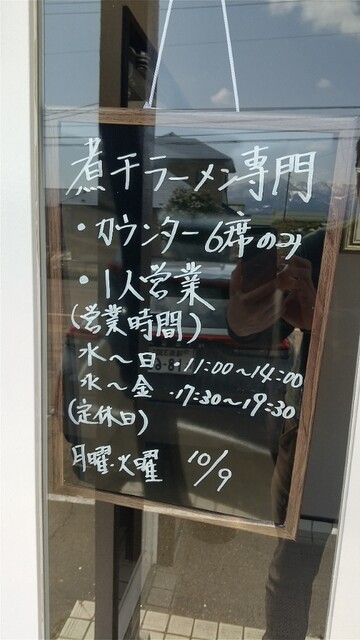 煮干ラーメン専門
・カウンター6席のみ
・1人営業
(営業時間)
水～日・11:00～14:00
水～金・17:30～19:30
(定休日)
月曜・火曜 10/9